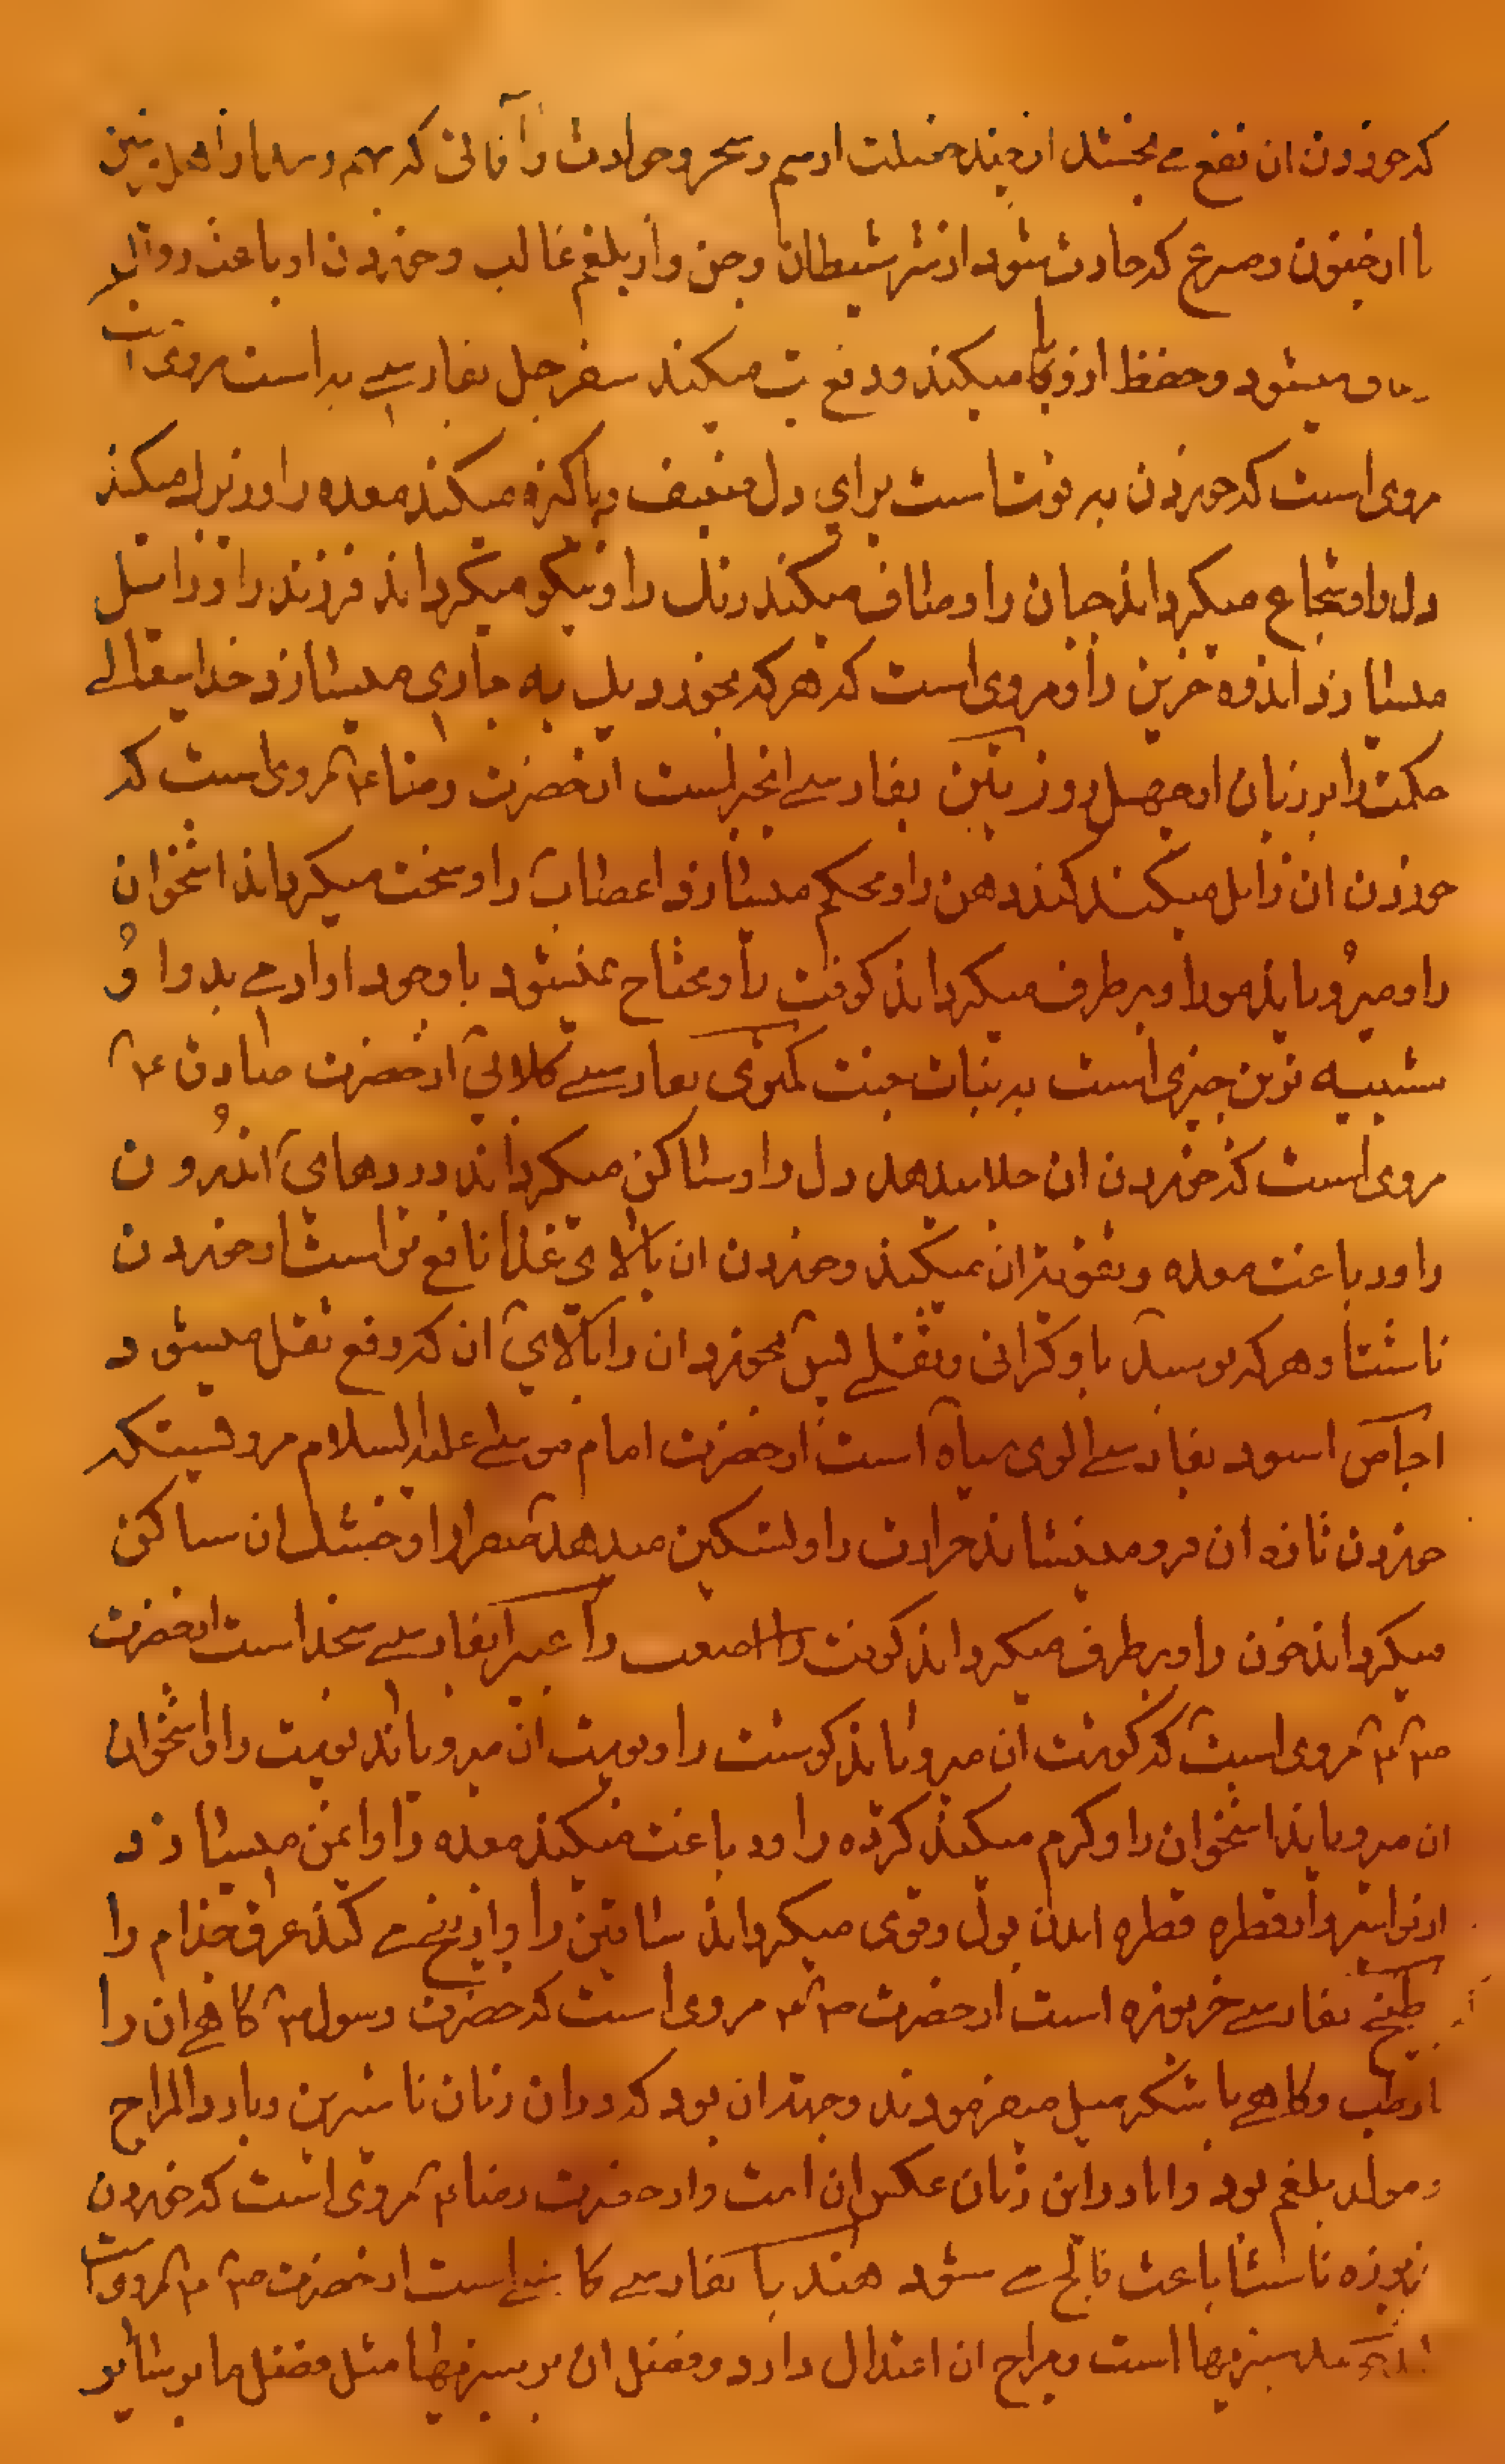 که خوردن ان نفع می بخشد از چند خصلت از سم و سحر و حوادث را آفاتی که بهم رسد از اهل زمین
یا از جنون و صرع که حادث شود از شر شیطان و جن و از بلغم غالب و خوردن او باعث زوال
میشود و حفظ از وبا میکند و دفع تب میکند سفرجل بفارسی به است مروی است
مروی است که خوردن به قوت است برای دل ضعیف و پاکیزه میکند معده را و زیرک میکند
دل را و شجاع میکرداند جبان را و صاف میکند رنک را و نیکو میکرداند فرزند را و زائل
میسازد اندوه حزین را و مروی است که هر که بخورد یک به جاری میسازد خدایتعالی
حکمت را بر زبان او چهل روز تین بفارسی انجیر است از حضرت رضا ع م مروی است که
خوردن ان زایل میکند کند دهن را و محکم میسازد اعصاب را و سخت میکرداند استخوان
را و میرویاند مو را و برطرف میکرداند کوفت را و محتاج نمیشود با وجود او ادمی بدوا و
شبیه ترین چیزی است به نباتات جنت کمثری بفارسی کلابی از حضرت صادق ع م
مروی است که خوردن ان جلا میدهد دل را و ساکن میکرداند دردهای اندرون
را و دباغت معده و تقویت ان میکند و خوردن ان بالای غذا نافع تر است از خوردن
ناشتا و هر که برسد باو کرانی و ثقلی پس بخورد ان را بالای ان که دفع ثقل میشود
اجاص اسود بفارسی الوی سیاه است از حضرت امام موسی علیه السلام مرویستکه
خوردن تازه ان فرو مینشاند حرارت را و تسکین میدهد صفرا را و خشک ان ساکن
میکرداند خون را و برطرف میکرداند کوفت را صعب را غبیرا بفارسی سنجد است از حضرت
ص م ع م مروی است که کوشت ان میرویاند کوشت را و پوست ان میرویاند پوست را و استخوان
ان میرویاند استخوان را و کرم میکند کرده را و دباغت میکند معده را و ایمن میسازد
از بواسیر و از قطره قطره امدن بول و قوی میکرداند ساقین را و از بیخ می کند عرق جذام را
بطیخ بفارسی خربوزه است از حضرت ص م ع م مروی است که حضرت رسول ص م کاهی ان را
با رطب و کاهی با شکر میل میفرمودند و جهت ان بود که در ان زمان نا شیرین و بارد المزاج
و مولد بلغم بود و اما در این زمان عکس ان است و از حضرت رضا ع م مروی است که خوردن
خربوزه ناشتا باعث فالج می شود هندبا بفارسی کاسنی است از حضرت ص م ع م مروی است
سبزیها است و مزاج ان اعتدال دارد و فضل ان بر سبزیها مثل فضل ما بر سایر